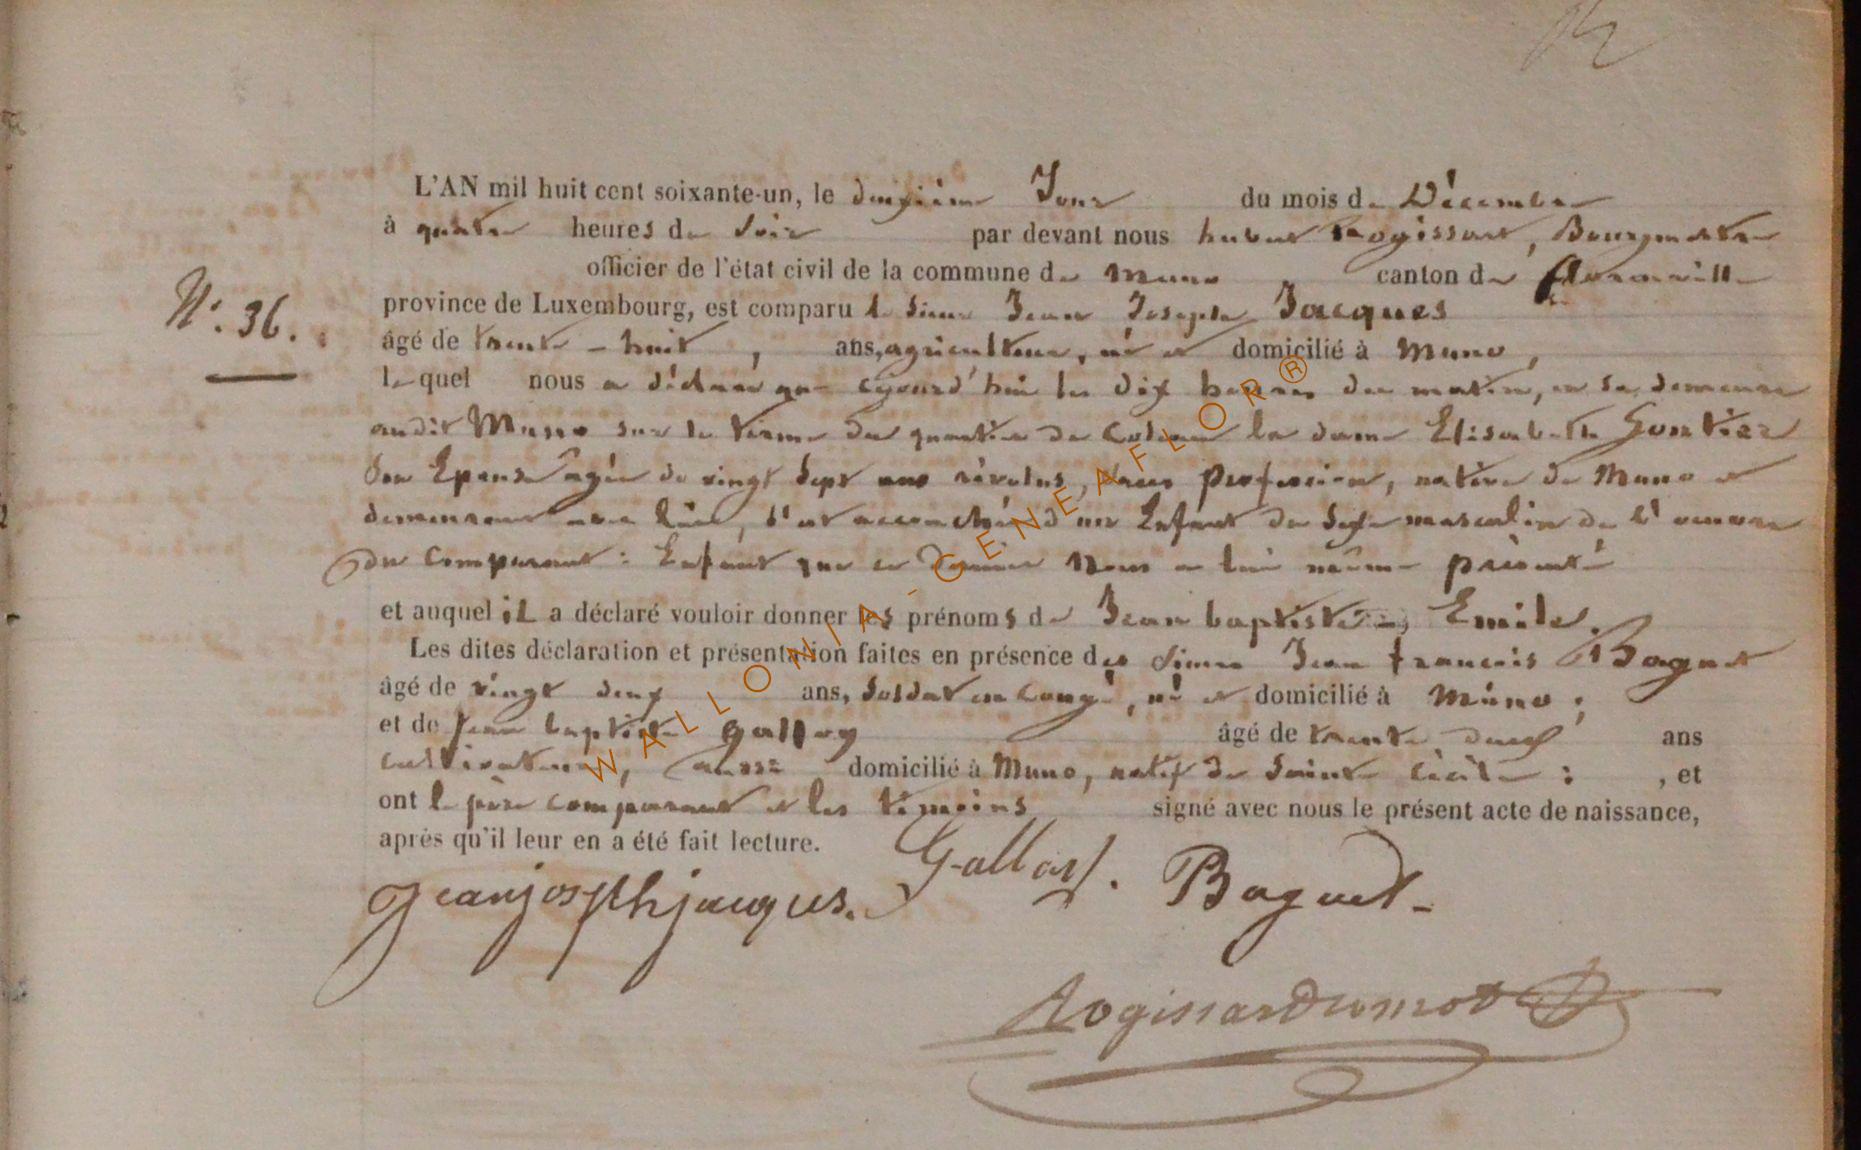 L'AN mil huit cent soixante-un, le douzième Jour du mois de Décembre
à quatre heures du Soir par devant nous hubert Rogissart, Bourgmestre
officier de l'état civil de la commune de Muno canton de florenville
N°. 36.
province de Luxembourg, est comparu le Sieur Jean Joseph Jacques
âgé de trente-huit, ans, agriculteur, né et domicilié à Muno,
lequel nous a déclaré que cejourd'hui les dix heures du matin, en sa demeure
audit Muno sur le terme du quartier de la dame Elisabeth Gontier
Son Epouse agée de vingt Sept ans révolus, sans profession, native de Muno et
demeurant avec lui, s'est accouchée d'un Enfant du Sexe masculin de l'oeuvre
du Comparant : Enfant que ce Dernier Nous a lui même présenté
et auquel il a déclaré vouloir donner les prénoms de Jean baptiste, Emile.
Les dites déclaration et présentation faites en présence des Sieurs Jean francois Baguet
âgé de vingt deux ans, Soldat en Congé, né et domicilié à Muno ;
et de Jean baptiste Galloy âgé de trente deux ans
Cultivateur, aussi domicilié à Muno, natif de Sainte Cécile : , et
ont le père comparant et les témoins signé avec nous le présent acte de naissance,
après qu'il leur en a été fait lecture.
jeanjosephjacques. Galloy. Baguet
WALLONIA - GENEAFLOR®